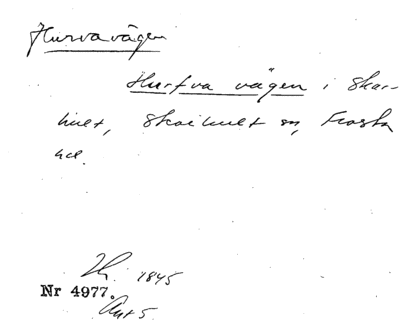 Hurvavägen
Hurfva vägen i Skar-
hult, Skarhult sn, Frosta
hd.
H. 1845
Nr 4977.
Akt 5.